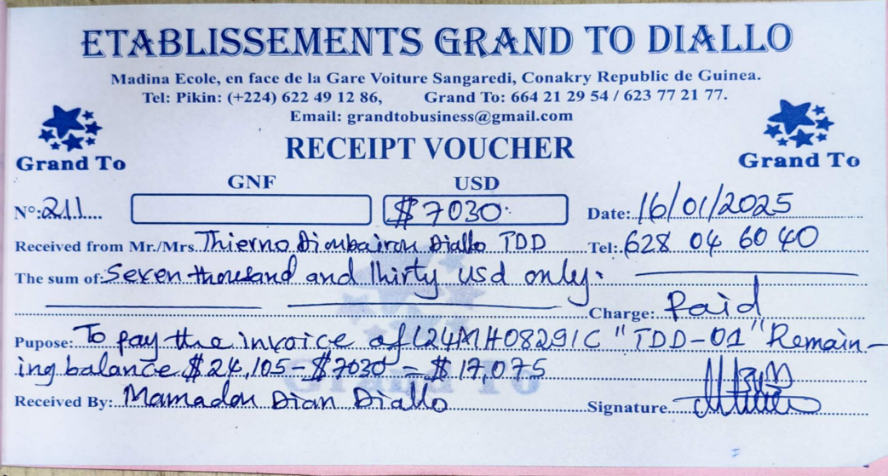 ETABLISSEMENTS GRAND TO DIALLO
Madina Ecole, en face de la Gare Voiture Sangaredi, Conakry Republic de Guinea.
Tel: Pikin: (+224) 622 49 12 86, Grand To: 664 21 29 54 / 623 77 21 77.
Email: grandtobusiness@gmail.com
Grand To
RECEIPT VOUCHER
Grand To
GNF USD
N°: 211 $7030 Date: 16/01/2025
Received from Mr./Mrs. Thierno Diallo TDD Tel: 628 04 60 40
The sum of: Seven thousand and thirty usd only.
Charge: Paid
Pupose: To pay the invoice of L24MH08291C "TDD-01" Remain-
ing balance $24,105-$7030 = $17,075
Grand To
Received By: Mamadou Dian Diallo Signature